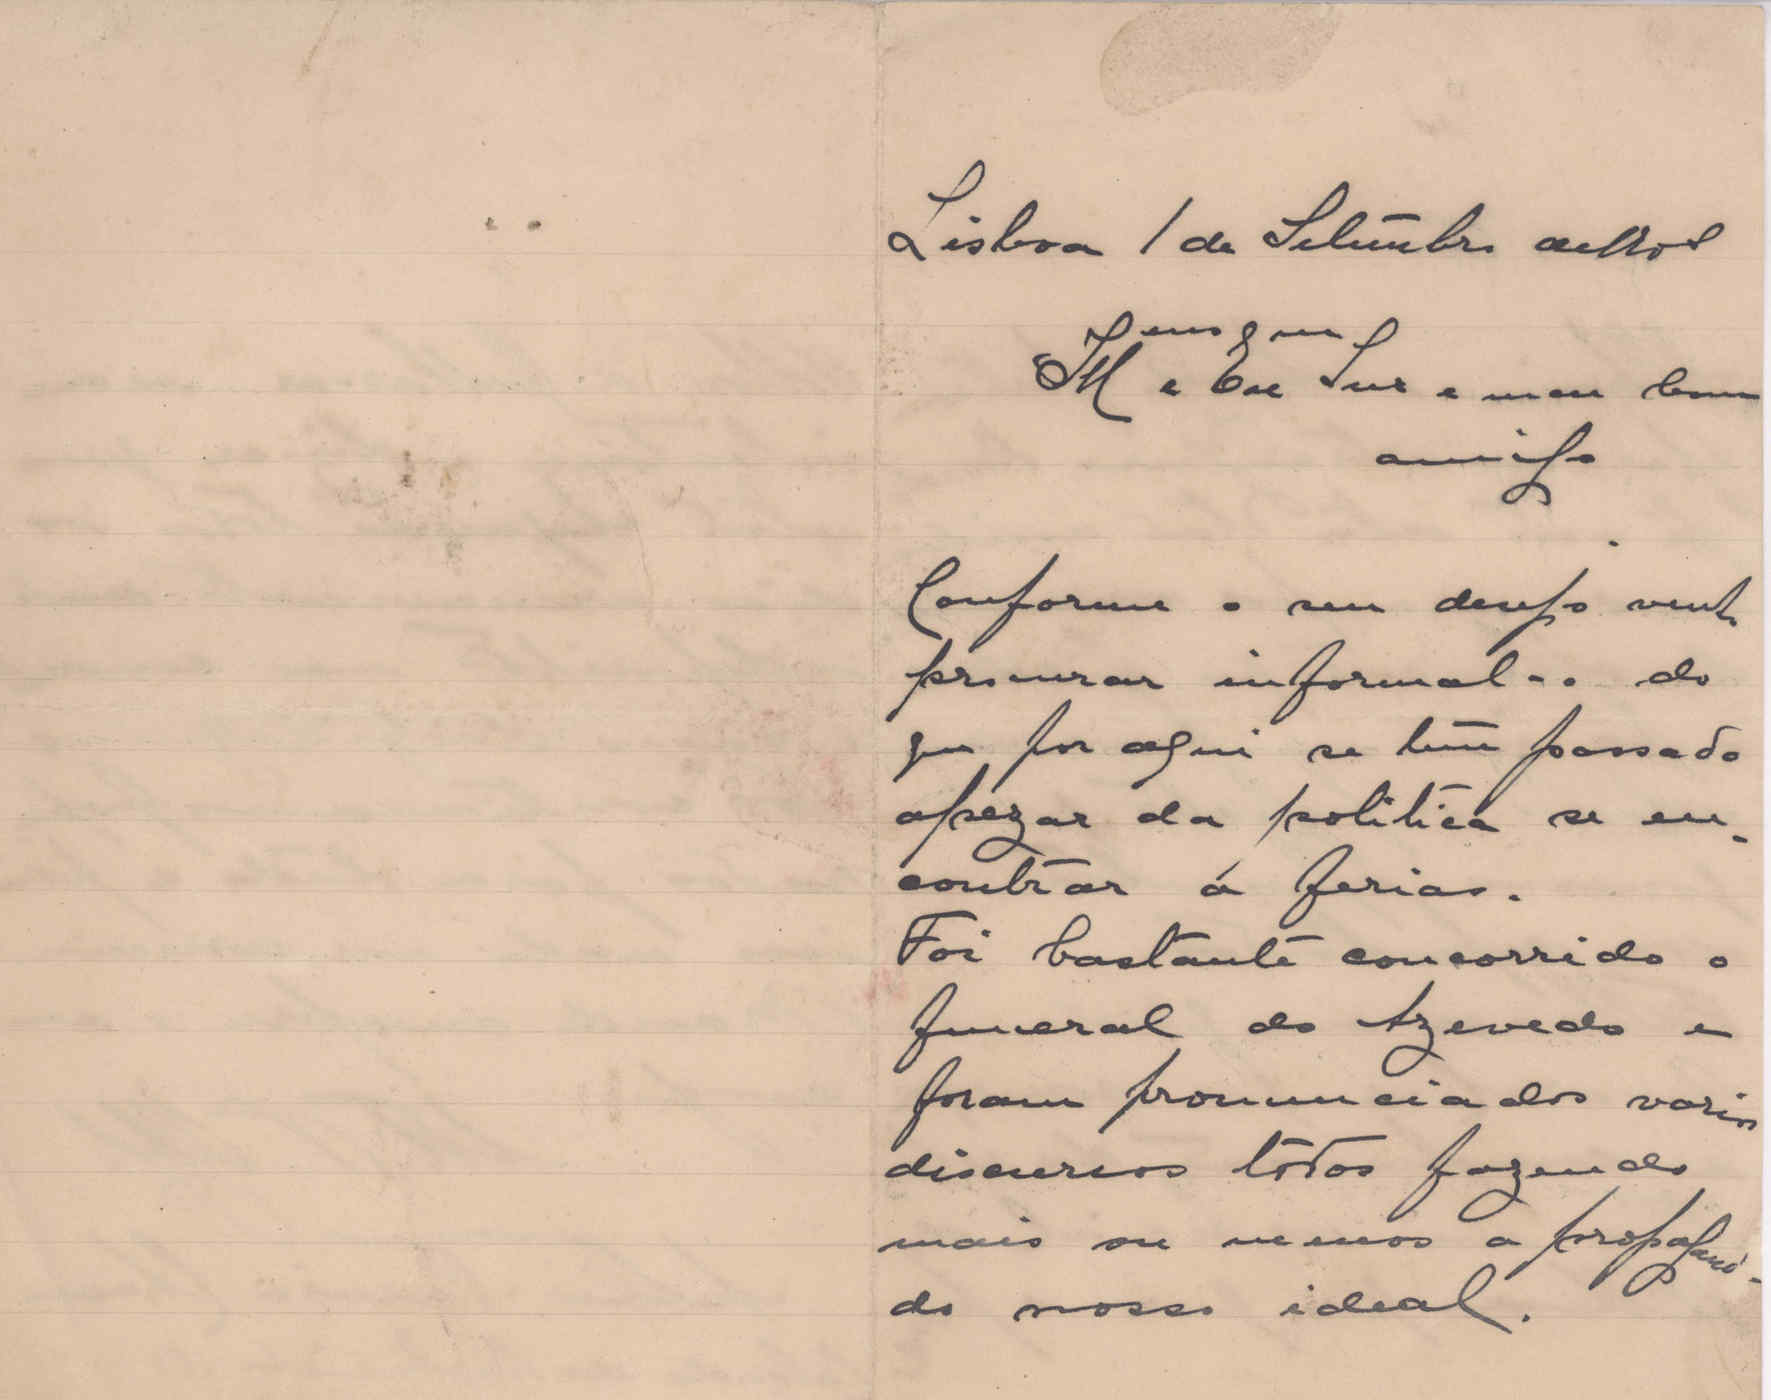 Lisboa 1 de Setembro de
Illmo e Exmo Snr e meu bom
amigo
Conforme o seu desejo venho
procurar informal-o do
que por aqui se tem passado
apezar da politica se en-
contrar á ferias.
Foi bastante concorrido o
funeral do Azevedo e
foram pronunciados varios
discursos todos fazendo
mais ou menos a propaganda
do nosso ideal.